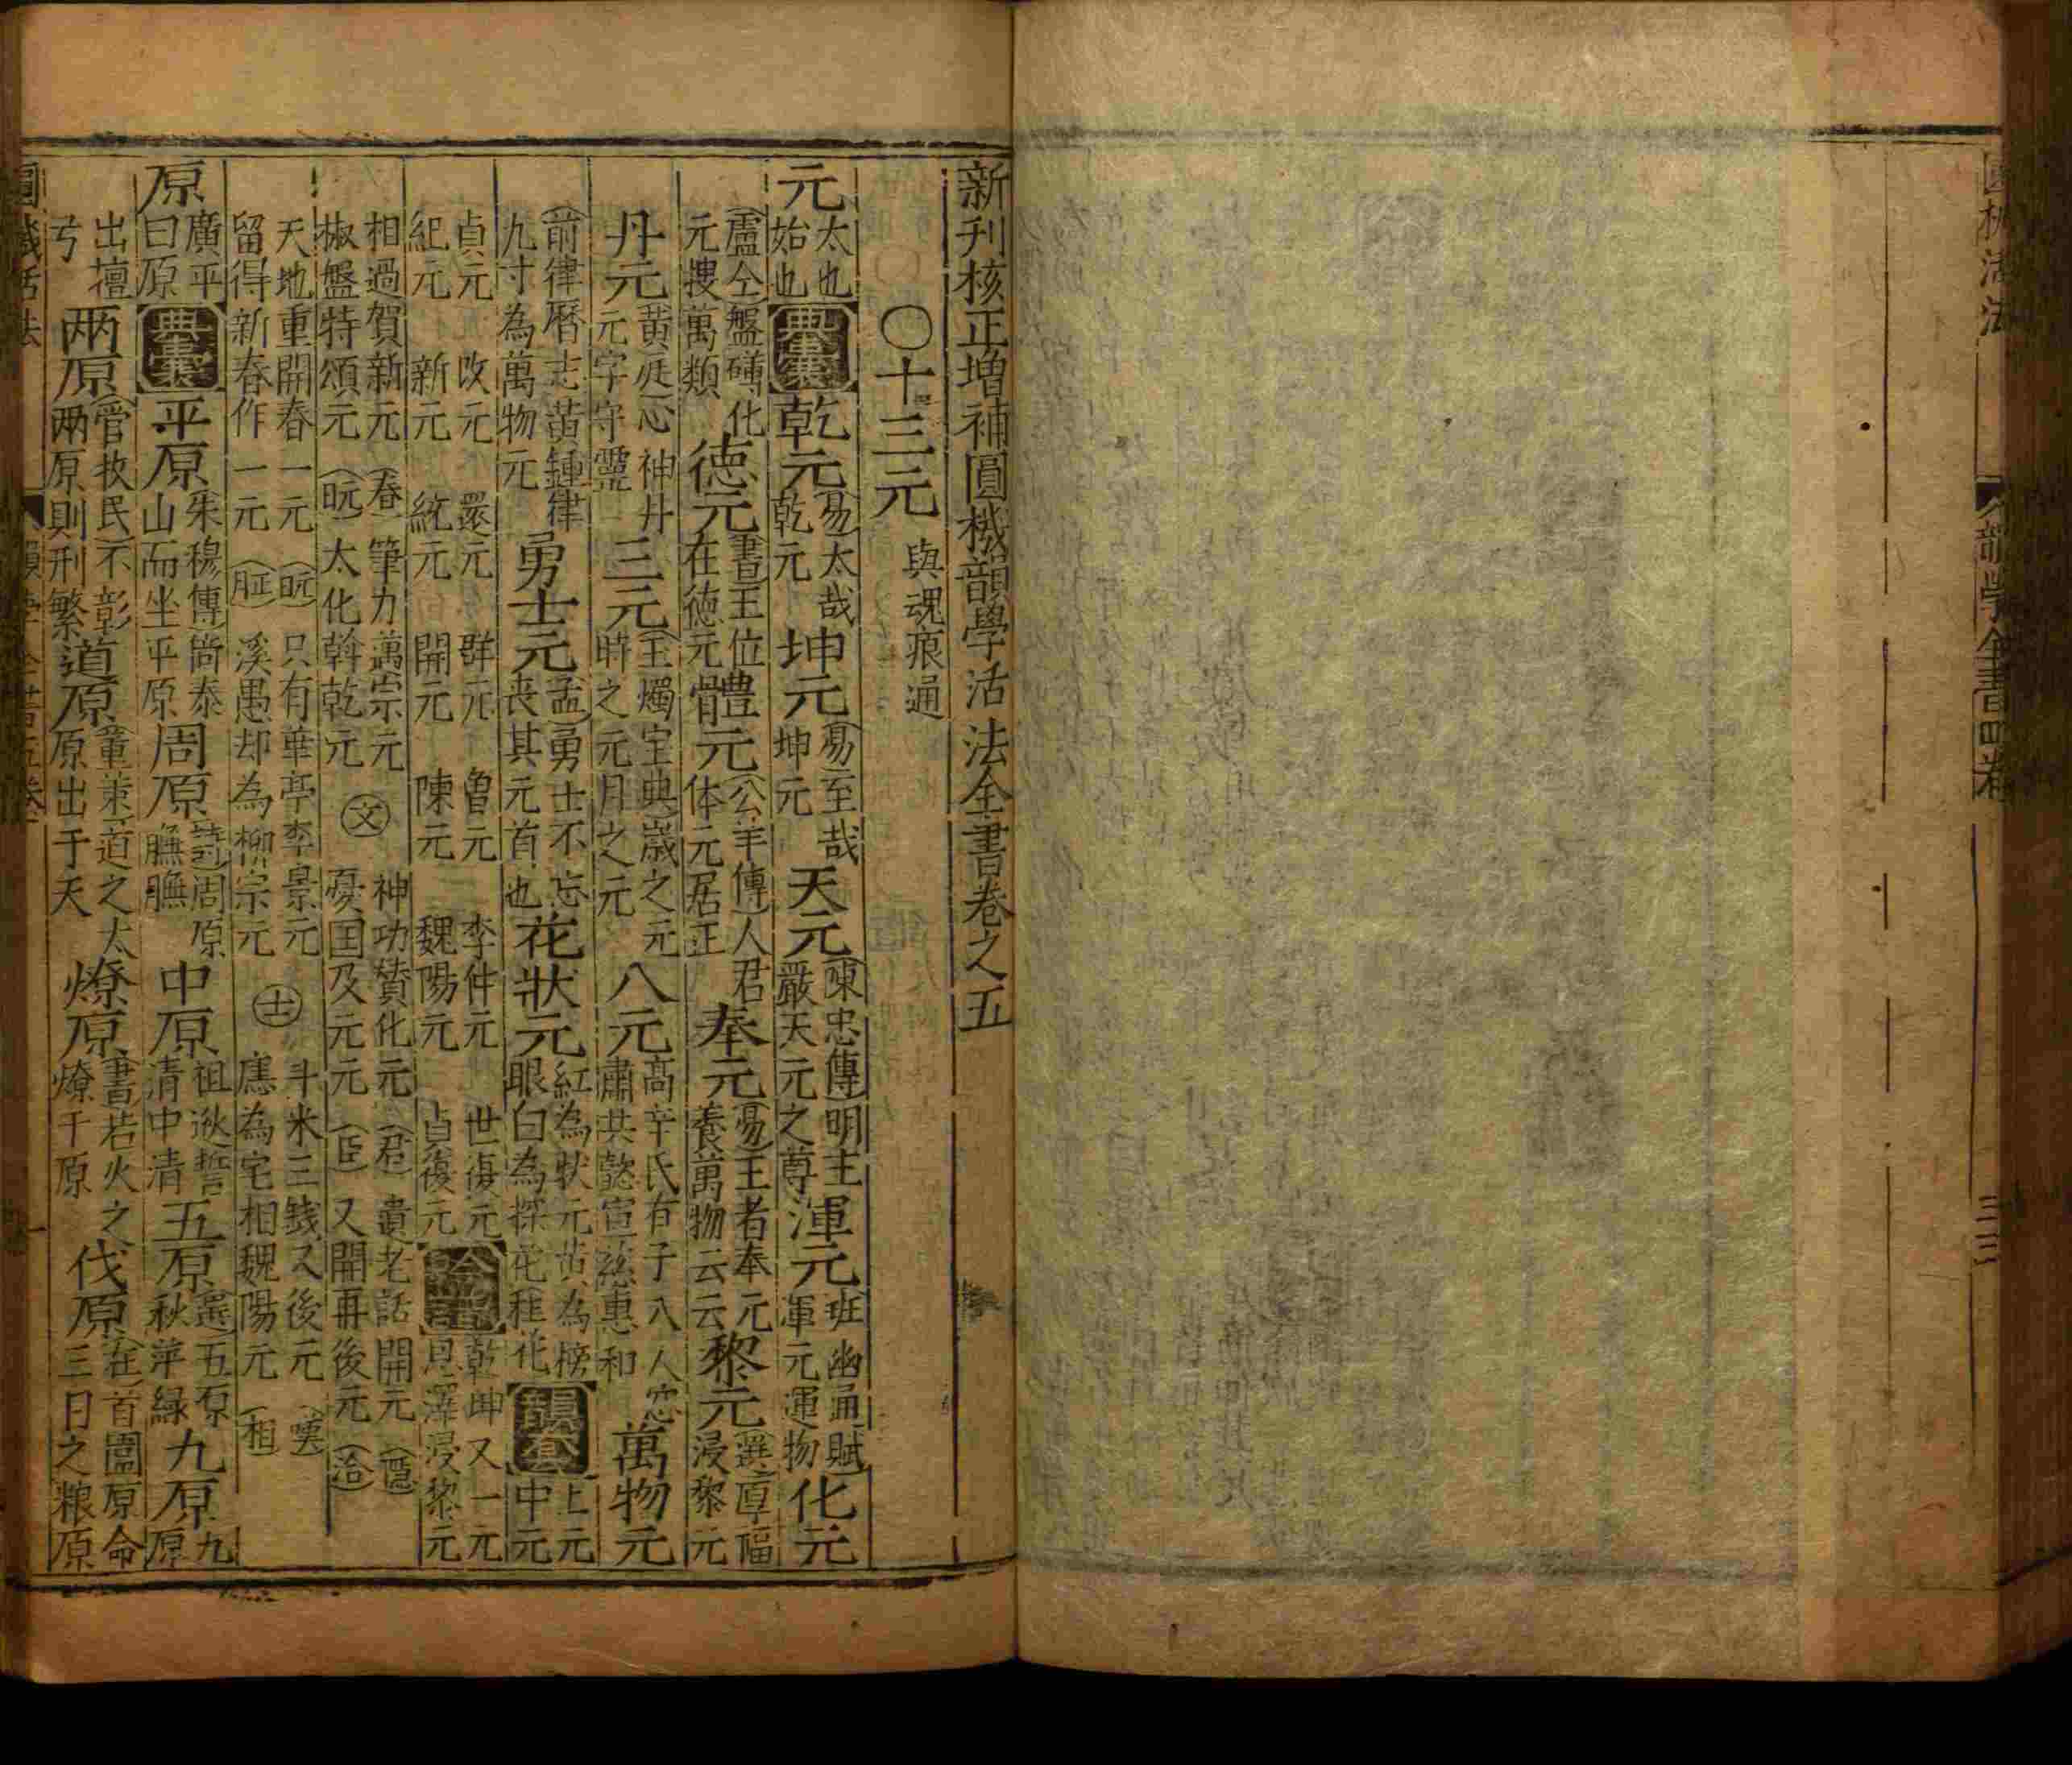 新刊校正增補圓機韻學活法全書卷之五
〇十三元 與魂痕通
元 太也始也 典𦸼 乾元 (易)太哉乾元 坤元 (易)至哉坤元 天元 (陳忠傳)明主嚴天元之尊 渾元 班幽通賦渾元運物 化元
(盧仝)盤礴化元搜萬類 德元 (書)王位在德元 體元 (公羊傳)人君体元居正 奉元 (易)王者奉元養萬物云云 黎元 (選)厚福浸黎元
丹元 黃庭心神丹元字守靈 三元 (玉燭宝典)歲之元時之元月之元 八元 高辛氏有子八人忠肅共懿宣慈惠和 萬物元
(前律曆志)黃鍾律九寸為萬物元 勇士元 (孟)勇士不忘喪其元首也 花狀元 紅為狀元黃為榜眼白為探花 韻套 上元 中元
貞元 紀元 改元 新元 還元 統元 群元 開元 曾元 陳元 李仲元 魏陽元 世復元 貞復元 乾坤又一元 恩澤浸黎元
相過賀新元 椒盤特頌元 (春) (旼) 筆力萬宗元 太化斡乾元 (文) 神功贊化元 憂国及元元 (君) (臣) 遺老話開元 又開再後元 (隱) (洽)
天地重開春一元 留得新春作一元 只有華亭李景元 溪愚却為柳宗元 (士) 斗米三錢又後元 應為宅相魏陽元 (相)
原 廣平曰原 平原 朱穆傳尚泰山而坐平原 周原 (詩)周原膴膴 中原 祖逖誓清中清 五原 (選)五原秋萍綠 九原 九原
出擅兮 兩原 (管牧民)不彰兩原則刑繁 道原 (董策)道之太原出于天 燎原 書若火之燎于原 伐原 (左)首圍原命三日之粮原
圓機活法 韻學全書五卷 一
圓机活法 韻學全書四卷